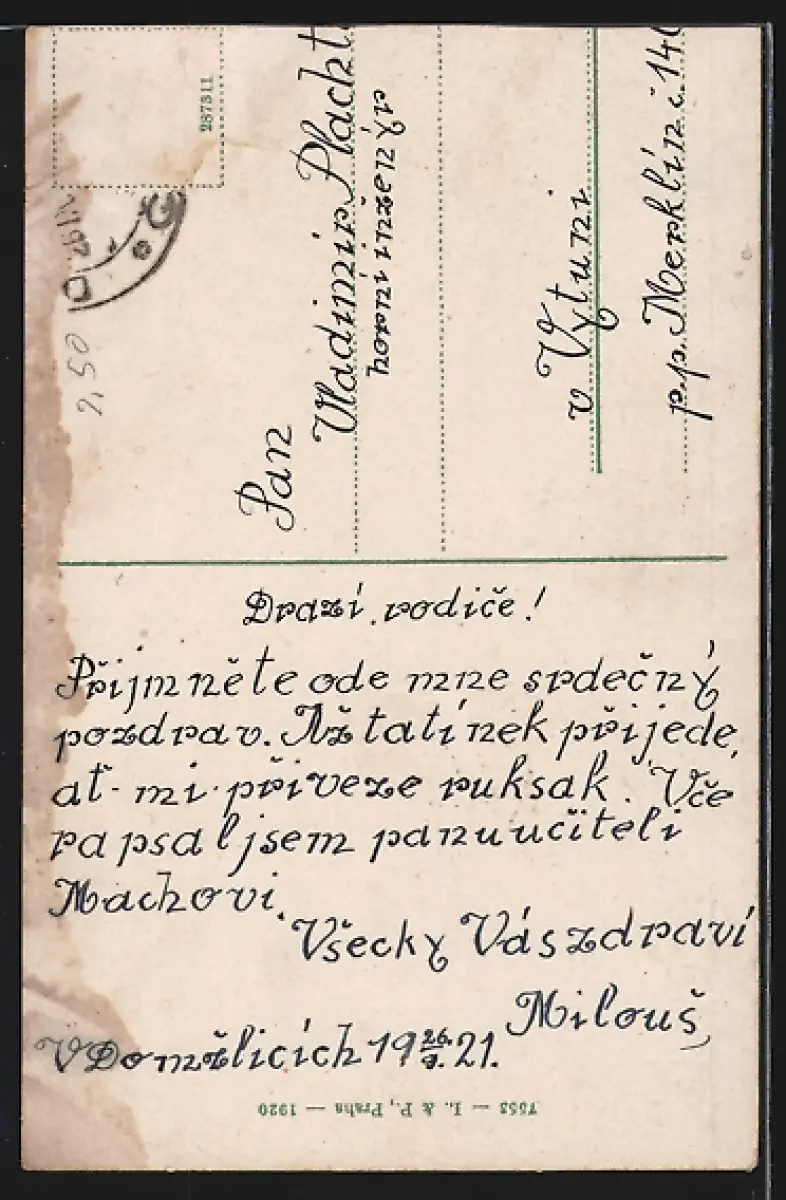 287311
2,50
Pan
Vladimir Placht
horní inženýr
v Vytuni
p.p. Merklín č. 14
Drazí rodiče!
Přijmněte ode mne srdečný
pozdrav. Až tatínek přijede,
ať mi přiveze ruksak. Vče
ra psal jsem panu učiteli
Machovi.
Všecky Vás zdraví
Milouš
V Domžlicích 19 26/9. 21.
7555 — L. & P., Praha — 1920